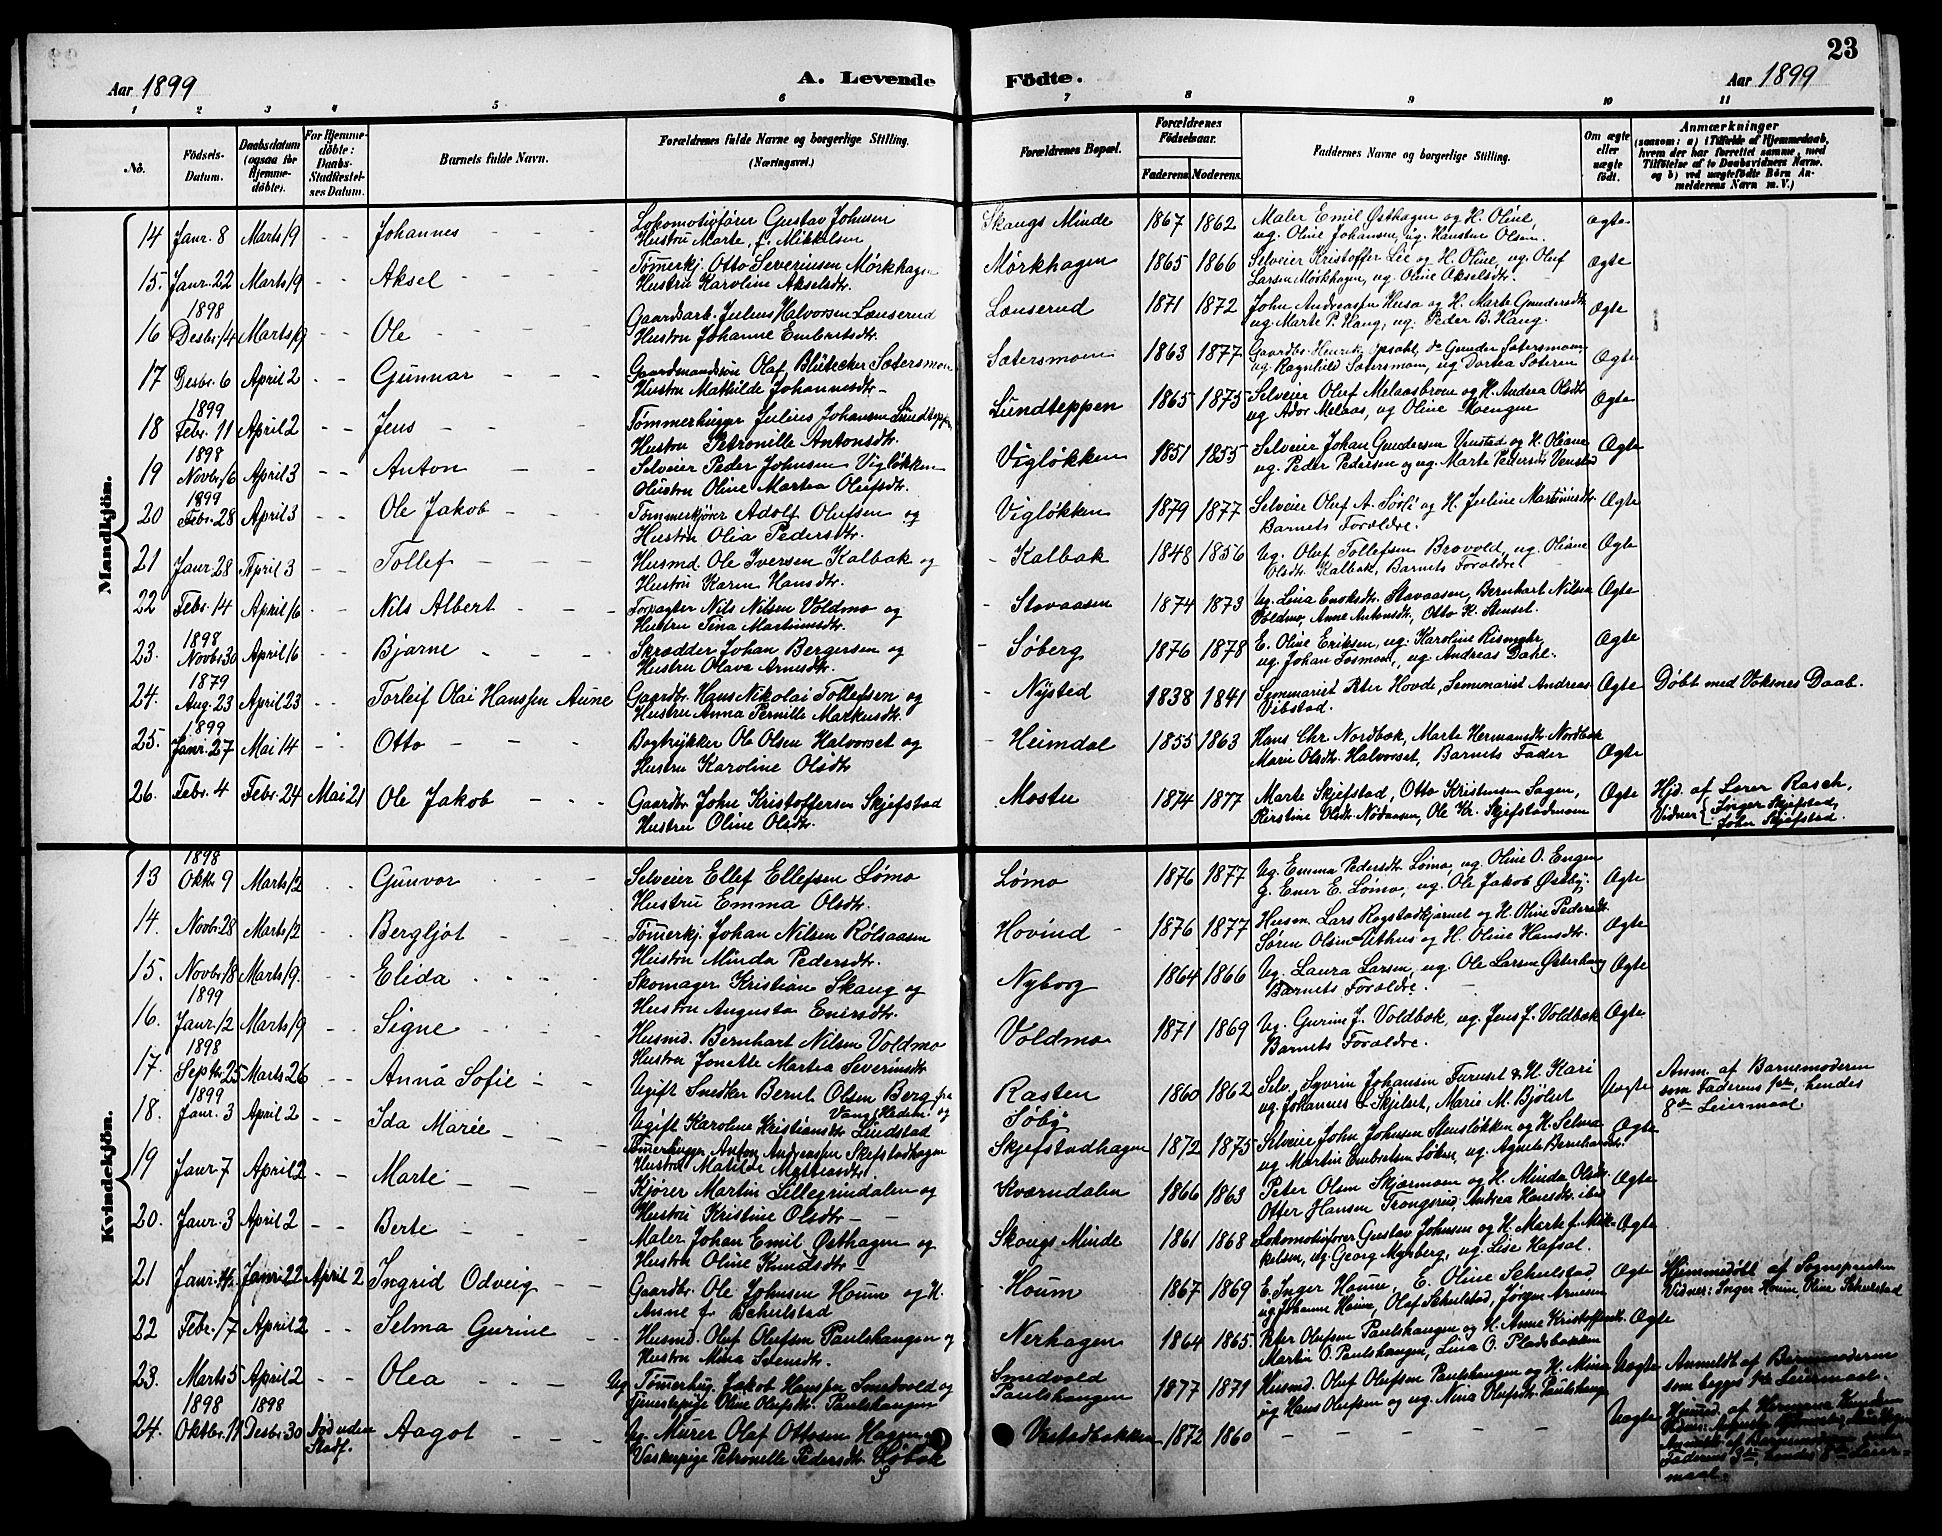 23
Aar 1899
A. Levende Födte.
Aar 1899
1 2 3 4 5 6 7 8 9 10 11
No.
Födsels-Datum.
Daabsdatum (ogsaa for Hjemme-döbte).
For Hjemme-döbte: Daabs-Stadfæstel-ses Datum.
Barnets fulde Navn.
Forældrenes fulde Navne og borgerlige Stilling. (Næringsvei.)
Forældrenes Bopæl.
Forældrenes Födselsaar.
Faderens. Moderens.
Faddernes Navne og borgerlige Stilling.
Om ægte eller uægte födt.
Anmærkninger
(saasom: a) i Tilfælde af Hjemmedaab, hvem der har forrettet samme, med Tilföielse af to Daabsvidners Navne. og b) ved uægtefödte Börn An-melderens Navn m. V.)
Mandkjön.
14 Janr. 8 Marts 19 - - Johannes - - -
Lokomotivfører Gustav Johnsen
Hustru Marte, f. Mikkelsen
Skaugs Minde 1867 1862
Maler Emil Østhagen og H. Oline,
ug. Oline Johansen, ug. Hanstine Olsen.
Ægte
15. Janr. 22 Marts 19 - - Aksel - - - -
Tømerkj. Otto Severinsen Mørkhagen
Hustru Karoline Akselsdtr.
Mørkhagen 1865 1866
Selveier Kristoffer Lie og H. Oline, ug. Oluf
Larsen Mørkhagen, ug. Oline Akselsdtr.
Ægte
1898
16 Desbr. 14 Marts 19 - - Ole - - - -
Gaardsarb. Julius Halvorsen Lænserud
Hustru Johanne Embretsdtr.
Lænserud 1871 1872
John Andreassen Husa og H. Marte Gundersdtr.
ug. Marte P. Haug, ug. Peder B. Haug.
Ægte
17 Desbr. 6 April 2 - - Gunnar - - -
Gaardmandssøn Olaf Blütecker Sætersmoen
Hustru Mathilde Johannesdtr. -
Sætersmoen 1863 1877
Gaardbr. Henrik Opsahl, do Gunder Sætersmoen,
ug. Ragnhild Sætersmoen, ug Dortea Sæteren
Ægte
1899
18 Febr. 11 April 2 - - Jens - - -
Tømmerhugger Julius Johansen Lundteppen
Hustru Petronille Antonsdtr.
Lundteppen 1865 1875
Selveier Oluf Melaasbroen og H. Andrea Olsdtr.
ug Ador Melaas, ug Oline Moengen
Ægte
1898
19 Novbr. 16 April 3 - - Anton - -
Selveier Peder Johnsen Vigløkken
Hustru Oline Martea Olufsdtr.
Vigløkken 1851 1855
Selveier Johan Gundersen Vensted og H. Oliane
ug. Peder Pedersen og ug. Marte Pedersdtr. Vensted
Ægte
1899
20 Febr. 28 April 3 - - Ole Jakob - - -
Tømmerkjører Adolf Olufsen og
Hustru Olia Pedersdtr.
Vigløkken 1879 1877
Selveier Oluf A. Sørli og H. Juline Martinusdtr.
Barnets Forældre.
Ægte
21 Janr. 28 April 3 - - Tollef - - -
Husmd. Ole Iversen Kalbæk og
Hustru Karen Hansdtr.
- Kalbæk 1848 1856
Ug. Oluf Tollefsen Brovold, ug. Oliane
Olsdtr. Kalbæk, Barnets Forældre
Ægte
22 Febr. 14 April 16 - - Nils Albert - - -
Forpagter Nils Nilsen Voldmo og
Hustru Tina Martinusdtr.
- Stavaasen 1874 1873
Ug. Lina Enoksdtr. Stavaasen, Bernhart Nilsen
Voldmo, Anne Antonsdtr., Otto K. Stenset.
Ægte
1898
23. Novbr. 30 April 16 - - Bjarne - - - -
Skrædder Johan Bergersen og
Hustru Olava Arnesdtr.
- Søberg 1876 1878
E. Oline Eriksen, ug. Karoline Rismyhr,
ug. Johan Fosmoen, ug Andreas Dahl.
Ægte
1879
24. Aug. 23 April 23 - - Torleif Olai Hanssen Aune
Gaardbr. Hans Nikolai Tollefsen og
Hustru Anna Pernille Markusdtr.
- Nysted 1838 1841
Seminarist Peter Hovde, Seminarist Andreas
Vibstad.
Ægte
Døbt med Voksnes Daab.
1899
25. Janr. 27 Mai 14 - - Otto - - -
Bogtrykker Ole Olsen Halvorset og
Hustru Karoline Olsdtr
- Heimdal 1855 1863
Hans Chr Nordbæk, Marte Hermansdtr. Nordbæk
Marie Olsdtr. Halvorset, Barnets Fader
Ægte
26. Febr. 4 Febr. 24 Mai 21 Ole Jakob - - -
Gaardbr John Kristoffersen Skjefstad
Hustru Oline Olsdtr.
- Mostu 1874 1877
Marte Skjefstad, Otto Kristensen Sagen,
Kerstine Olsdtr. Nødaasen, Ole Kr. Skjefstadmoen
Ægte
Hjd. af Lærer Rasch,
Vidner { Inger Skjefstad,
John Skjefstad.
Kvindekjön.
1898
13 Oktbr 9 Marts 12 - - Gunvor - - -
Selveier Ellef Ellefsen Lømo
Hustru Emma Olsdtr.
Lømo 1876 1877
Ug. Emma Pedersdtr. Lømo, ug. Oline O. Engen
g. Ener E. Lømo, ug. Ole Jakob Østby.
Ægte
14. Novbr. 28 Marts 12 - - Bergljot - - -
Tømerkj. Johan Nilsen Rølsaasen
Hustru Minda Pedersdtr.
Hovind - 1876 1877
Husm. Lars Rogstadkjærnet og H. Oline Pedersdtr.
Søren Olsen Uthus og H. Oline Hansdtr.
Ægte
15. Novbr. 18 Marts 19. - - Elida - - - -
Skomager Kristian Skaug og
Hustru Augusta Enersdtr.
Nyborg 1864 1866
Ug. Laura Larsen, ug. Ole Larsen Østerhaug
Barnets Forældre.
Ægte
1899
16. Janr. 12 Marts 19 - - Signe - - - -
Husmd. Bernhart Nilsen Voldmo
Hustru Jonette Martea Severinsdtr
Voldmo 1871 1869
Ug. Gurine J. Voldbæk, ug. Jens J. Voldbæk
Barnets Forældre.
Ægte
1898
17. Septbr. 25 Marts 26 - - Anna Sofie - -
Ugift Snedker Bernt Olsen Berg fra
Vang, Hedem. og
Ugift Karoline Kristiansdtr Lindstad
Rasten
Søby
1860 1862
Selv. Syverin Johansen Furuset & H. Kari
ug. Johannes L. Skjelset, Marie M. Bjølset
Uægte
Anm. af Barnemoderen
som Faderens 1ste, hendes
8de Leiermaal.
1899
18. Janr. 3 April 2 - - Ida Marie - - -
Tømerhugger Anton Andreassen Skjefstadhagen
Hustru Matilde Mattiasdtr
Skjefstadhagen 1872 1875
Selveier John Johnsen Stensløkken og H. Selma
ug Martin Embretsen Løken, ug. Agnete Bernhardsdtr.
Ægte
19 Janr. 7 April 2 - - Marte - - -
Kjører Martin Lillegrindalen og
Hustru Kristine Olsdtr. - -
Kværndalen 1866 1863
Peter Olsen Skjærmoen og H. Minda Olsdtr.
Otter Hansen Trongsrud, Andrea Hansdtr. ibid
Ægte
20. Janr. 3 April 2 - - Berte - - -
Maler Johan Emil Østhagen og
Hustru Oline Knudsdtr -
Skaugs Minde 1861 1868
Lokomotivfører Gustav Johnsen og H. Marte f. Mik-
kelsen, ug. Georg Myrberg, ug. Lise Hafsal.
Ægte
21 Janr. Janr. 22 April 2 Ingrid Odveig - -
Gaardbr. Ole Johnsen Houm og H.
Anne f. Schulstad
- Houm 1867 1869
E. Inger Houm, E. Oline Schulstad,
ug Johanne Houm, Olaf Schulstad, Jørgen Arnesen
Ægte
Hjemmedøbt af Sognepresten
Vidner: Inger Houm Oline Schulstad
22 Febr. 17 April 2 - - Selma Gurine - -
Husmd. Oluf Olufsen Paulshaugen og
Hustru Mina Svensdtr.
Nerhagen 1864 1865
Peter Olufsen Paulshaugen og H. Anne Kristoffersdtr.
Martin O. Paulshaugen, Lina O. Pladsbakken
Ægte
23. Marts 5 April 2 - - Olea - - - -
Ug Tømerhug. Jakob Hanssen Smedvold og
Tjenestepige Oline Olufsdtr. Paulshaugen
Smedvold
Paulshaugen
1877 1879
Husmd. Oluf Olufsen Paulshaugen og H. Mina
ug Hans Olufsen og ug. Nina Olufsdtr. Paulshaug.
Uægte
Anmeldt af Barnemoderen
som begges 1ste Leiermaal.
1898 1898
24. Oktbr. 11 Desbr. 30 Død uden Stadf. Aagot - - -
Ug. Murer Olaf Ottosen Hagen
Vaskerpige Petronelle Pedersdtr.
Vestadbakken 1872 1860
- - - - - -
Uægte
Faderens 3die, hendes Leier-
maal.